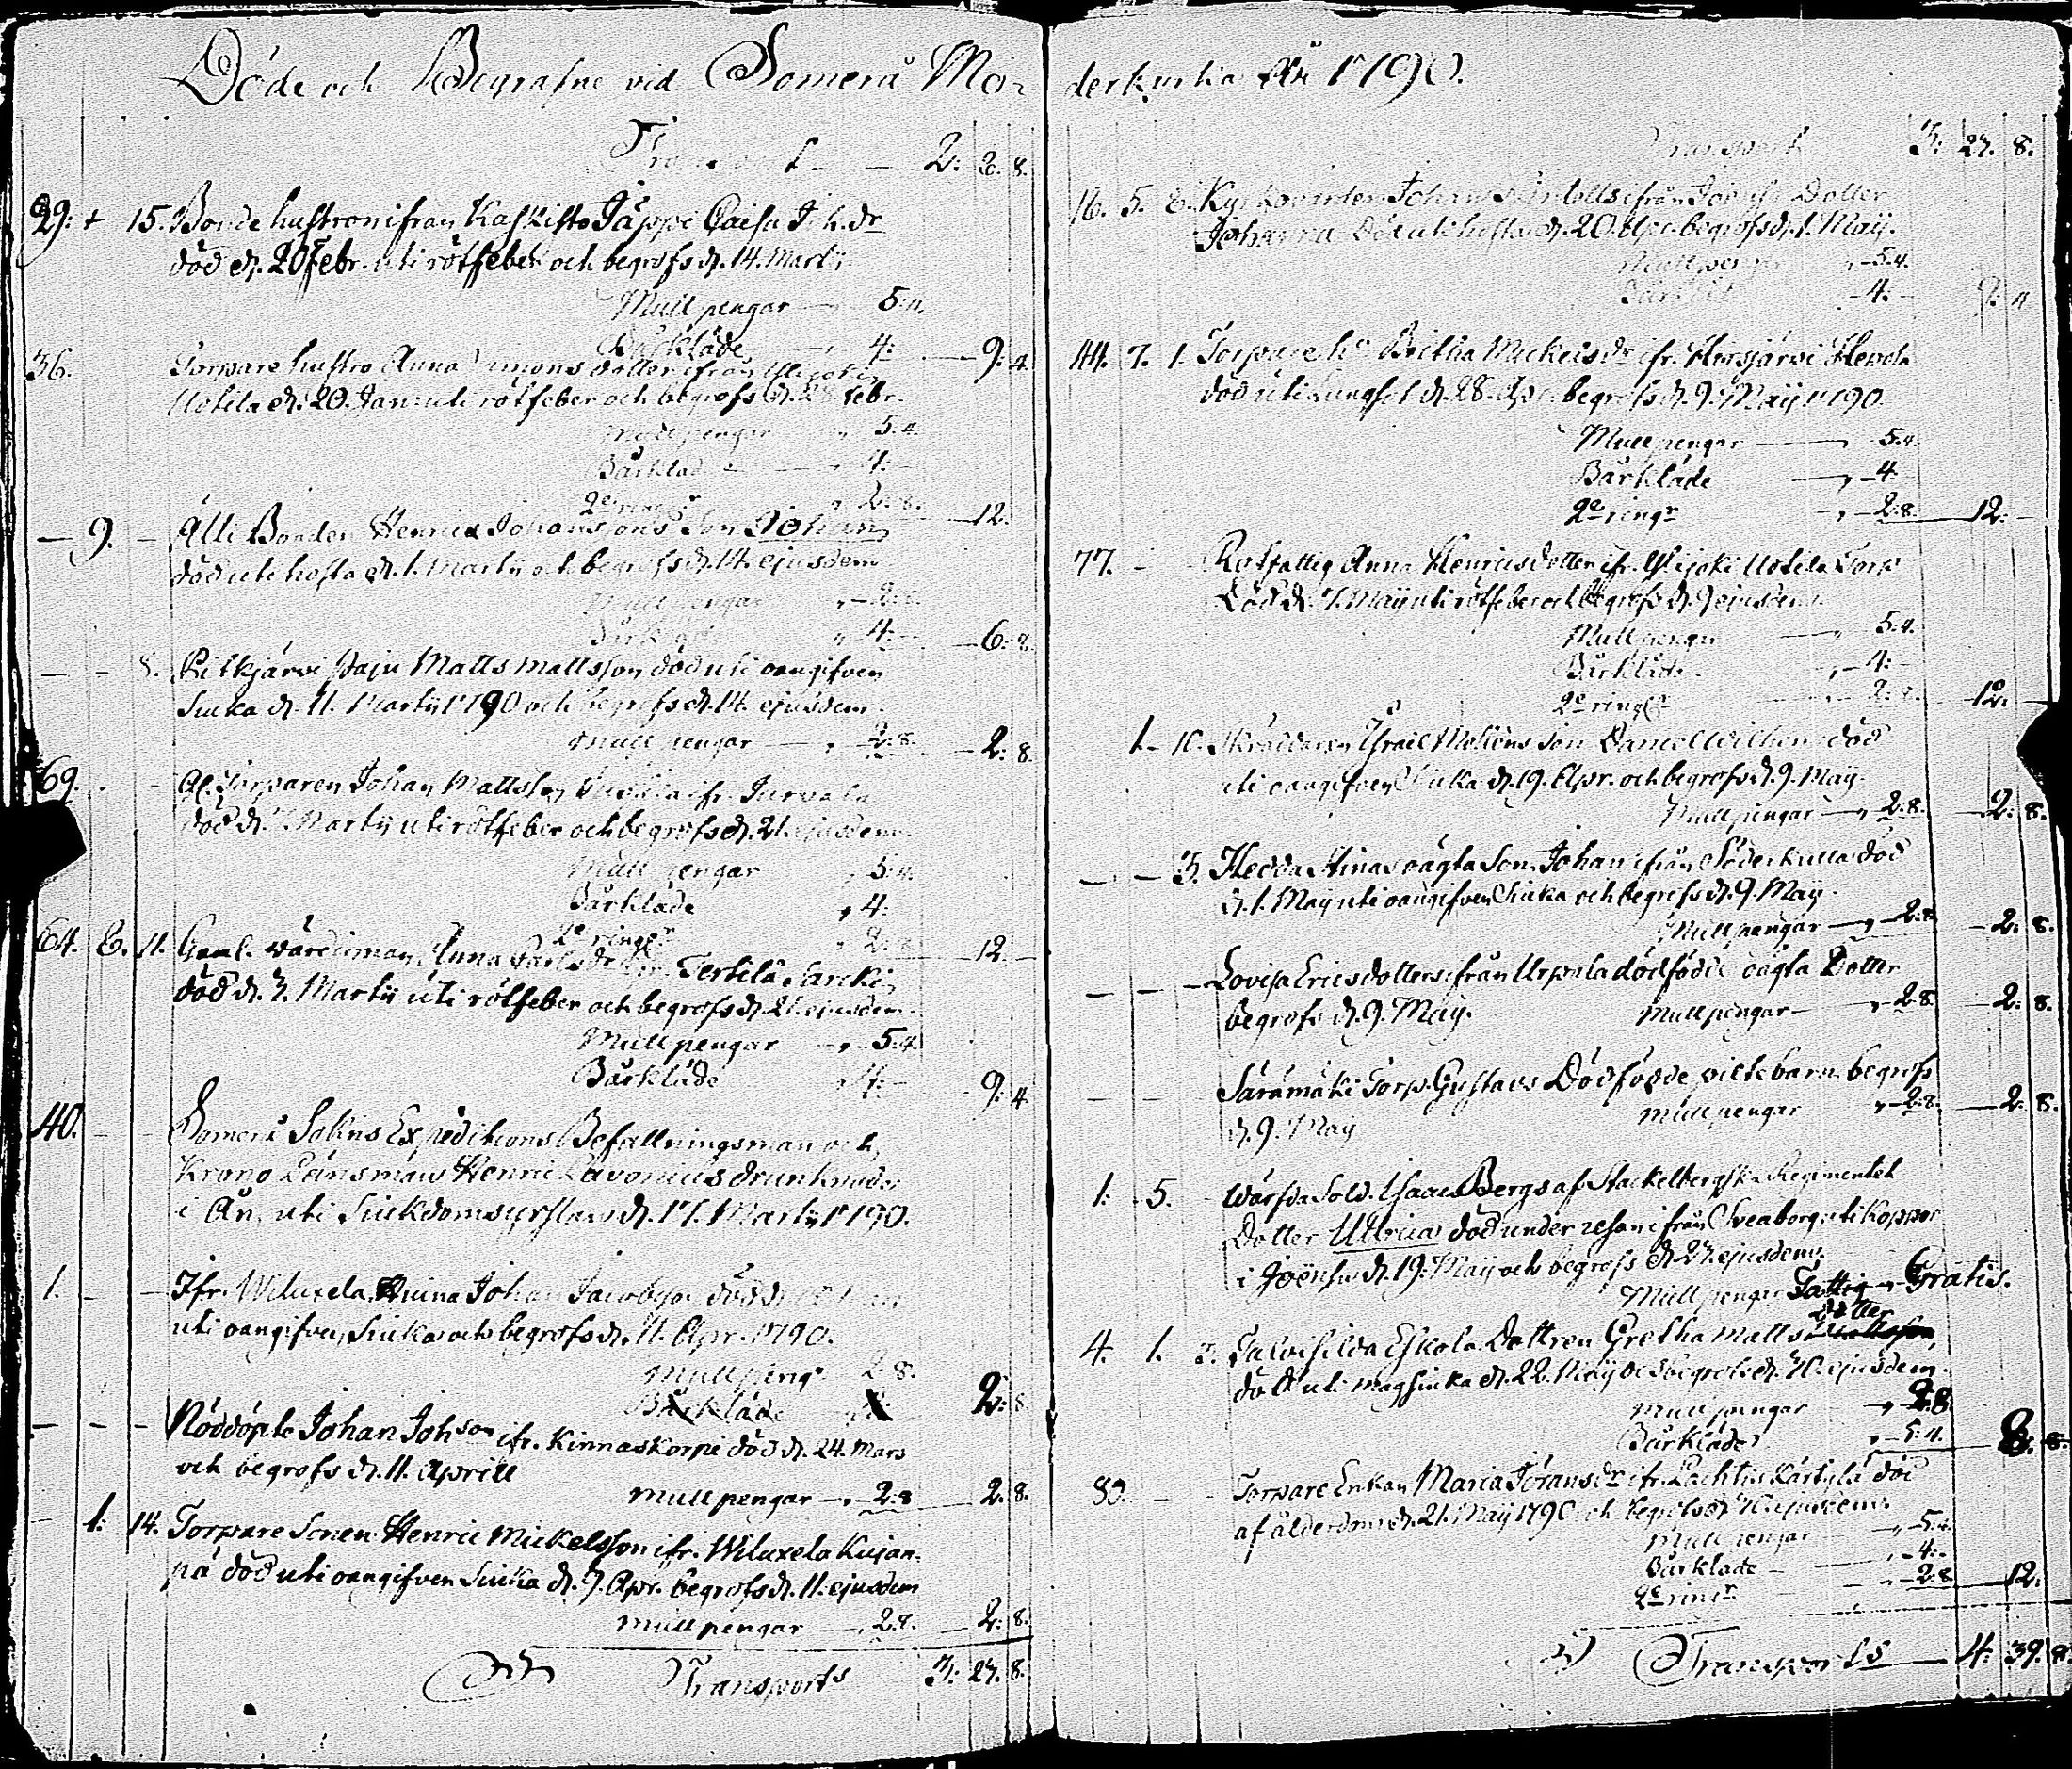 Döde och Begrafne vid Somerå Mo-
Transport 2: 2. 8.
29: + 15. Bonde hustron ifrån Kaskisto Jäppi Caisa J. h. dr
död d. 20 Febr. uti rötfeber och begrofs d. 14. Martij
Mull pengar 5:4.
Bårkläde 4: 9: 4
36. Torpare hustro Anna Simons dotter ifrån Ylijoki
Uotila d. 20. Jan. uti rötfeber och begrofs d. 28 Febr.
Mull pengar 5:4.
Bårkläd 4:
2e ringr 2:8. 12.
9. Älli Bonden Henric Johanssons Son Johan
död uti hosta d. 1. Martij och begrofs d. 14 ejusdem
Mull pengar 2:8.
Bårkläde 4: 6: 8.
8. Pitkjärvi Paju Matts Mattsson död uti oangifven
Siuka d. 11. Martij 1790 och begrofs d. 14. ejusdem.
Mull pengar 2:8. 2: 8.
69. Gl. Torparen Johan Mattsson ifr. Jurvala
död d. 7. Martij uti rötfeber och begrofs d. 21. ejusdem.
Mull pengar 5:4.
Bårkläde 4:
2e ringr 2:8 12.
64. 6. 11. Gaml. värdinnan Anna Carlsdr ifr. Terttilä Sarcki
död d. 7. Martij uti rötfeber och begrofs d. 21. ejusdem.
Mull pengar 5:4
Bårkläde 4: 9: 4
40. Somerå Sokns Expeditions Befallningsman och
Krono Länsman Henric Lavonius drunknade
i Ån uti Siukdoms yrslan d. 17. Martij 1790.
1. Ifr. Wiluxela Johan Jacobsson död d.
uti oangifven Siuka och begrofs d. 11. Apr. 1790.
Mull pengr 2:8.
Bårkläde 2: 8
Nöddöpte Johan Johson ifr. Kinnaskorpi död d. 24. Mars
och begrofs d. 11. Aprill
Mull pengar 2:8 2. 8.
1: 14. Torpare Sonen Henric Mickelsson ifr. Wiluxela Kujan-
pä död uti oangifven Siuka d. 7. Apr. begrofs d. 11. ejusdem
Mull pengar 2:8. 2: 8.
Transports 3: 27. 8.
derkyrkia År 1790.
Transport 3: 27. 8.
16. 5. 6. Kyrkovärden Johan ifrån Joensu Dotter
Johanna Död uti hosta d. 20. Apr. begrofs d. 1. Maij.
Mull pengr 5:4.
Bårkläd 4: 9: 4
44. 7. 1. Torpare ho Britha Mickelsdr ifr. Hirsjärvi Hevola
död uti Lungsot d. 28. Apr. begrofs d. 9. Maij 1790.
Mull pengar 5:4.
Bårkläde 4:
2e ringr 2:8. 12:
77. Rotfattig Anna Henricsdotter ifr. Ylijoki Uotila Torp
Död d. 7. Maij uti rötfeber och begrofs d. 9 ejusdem.
Mull pengar 5:4.
Bårkläde 4:
2e ringr 2:8. 12.
1. 10. Skräddaren Israel Moliens Son Daniel Wilhem död
uti oangifven Siuka d. 19. Apr. och begrofs d. 9. Maij.
Mull pengar 2:8. 2: 8.
3. Hedda Stinas oägta Son Johan ifrån Söderkulla död
d. 1. Maij uti oangifven Siuka och begrofs d. 9. Maij.
Mull pengar 2:8. 2. 8.
Lovisa Ericsdotters ifrån Urpala dödfödde oägta Dotter
begrofs d. 9. Maij. Mull pengar 2:8 2: 8.
Särämäki Torp. Gustavs Dödfödde piltebarn begrofs
d. 9. Maij Mull pengar 2:8. 2: 8.
1: 5. Wärfda Sold. Isaac Bergs af Stackelbergska Regimentet
Dotter Ulrica död under resan ifrån Sveaborg uti koppor
i Joënsu d. 19. Maij och begrofs d. 27 ejusdem.
Mull pengar Fattig Gratis.
4. 1. 3. Talvisilda Eskola Dottren Gretha Matts dotter
död uti magsiuka d. 22. Maij och begrofs d. 30. ejusdem.
Mull pengar 2:8
Bårkläde 5:4. 8:
80. Torpare Enkan Maria Jöransdr ifr. Lachtis Kärtylä död
af ålderdom d. 21. Maij 1790 och begrofs d. 30. ejusdem.
Mull pengar 5:4.
Bårkläde 4:
2e ringr 2:8 12:
Transports 4: 39. 8.